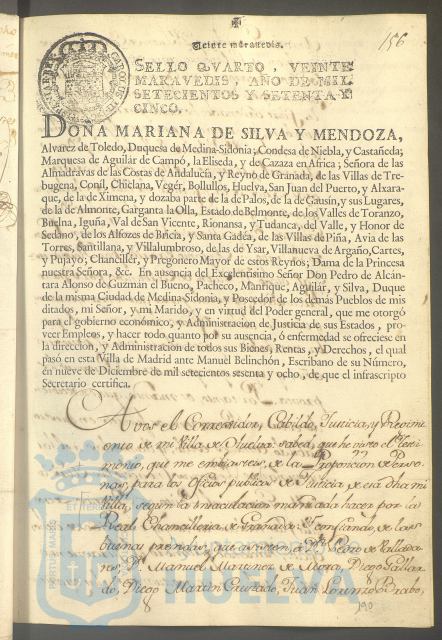 Veinte maravedis.
156
SELLO QVARTO, VEINTE
MARAVEDIS, AÑO DE MIL
SETECIENTOS Y SETENTA Y
CINCO.
DOÑA MARIANA DE SILVA Y MENDOZA,
Alvarez de Toledo, Duquesa de Medina-Sidonia; Condesa de Niebla, y Castañeda;
Marquesa de Aguilar de Campó, la Eliseda, y de Cazaza en Africa; Señora de las
Almadravas de las Costas de Andalucía, y Reyno de Granada, de las Villas de Tre-
bugena, Conil, Chiclana, Vegér, Bollullos, Huelva, San Juan del Puerto, y Alxara-
que, de la de Ximena, y dozaba parte de la de Palos, de la de Gausin, y sus Lugares,
de la de Almonte, Garganta la Olla, Estado de Belmonte, de los Valles de Toranzo,
Buelna, Iguña, Val de San Vicente, Rionansa, y Tudanca, del Valle, y Honor de
Sedano, de los Alfozes de Bricia, y Santa Gadéa, de las Villas de Piña, Avia de las
Torres, Santillana, y Villalumbroso, de las de Ysar, Villanueva de Argaño, Cartes,
y Pujayo; Chancillér, y Pregonero Mayor de estos Reynos; Dama de la Princesa
nuestra Señora, &c. En ausencia del Excelentisimo Señor Don Pedro de Alcán-
tara Alonso de Guzman el Bueno, Pacheco, Manrique, Aguilár, y Silva, Duque
de la misma Ciudad de Medina-Sidonia, y Posedór de los demás Pueblos de mis
ditados, mi Señor, y mi Marido, y en virtud del Poder general, que me otorgó
para el gobierno económico, y Administracion de Justicia de sus Estados, pro-
veer Empleos, y hacer todo quanto por su ausencia, ó enfermedad se ofreciese en
la direccion, y Administracion de todos sus Bienes, Rentas, y Derechos, el qual
pasó en esta Villa de Madrid ante Manuel Belinchón, Escribano de su Número,
en nueve de Diciembre de mil setecientos sesenta y ocho, de que el infrascripto
Secretario certifica.
A vos el Correxidor, Cabildo, Justicia, y Reximi
ento de mi Villa de Huelva: sabed, que he visto el Testi
monio, que me embiasteis, de la Proporcion de Perso
nas, para los oficios publicos de Justicia de esa dha mi
Villa, segun la insaculacion mandada hacer por la
Real Chancilleria de Granada: Y confiando, de las
buenas prendas, que asisten, a Dn. Pedro de Vallada
res, Dn. Manuel Martinez de Mora, Diego Gallar
do, Diego Martin Cruzado, Juan Lorenzo Brabo,
190
PORTUS MARIS ET TERRAE
Ayuntamiento de
HUELVA